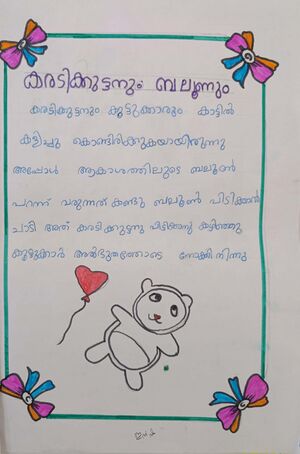 കരടിക്കുട്ടനും ബലൂണും
കരടിക്കുട്ടനും കൂട്ടുക്കാരും കാട്ടിൽ
കളിച്ചു കൊണ്ടിരിക്കുകയായിരുന്നു
അപ്പോൾ ആകാശത്തിലൂടെ ബലൂൺ
പറന്ന് വരുന്നത് കണ്ടു ബലൂൺ പിടിക്കാൻ
ചാടി അത് കരടിക്കുട്ടനു കഴിഞ്ഞു
അൽഭുതത്തോടെ നോക്കി നിന്നു